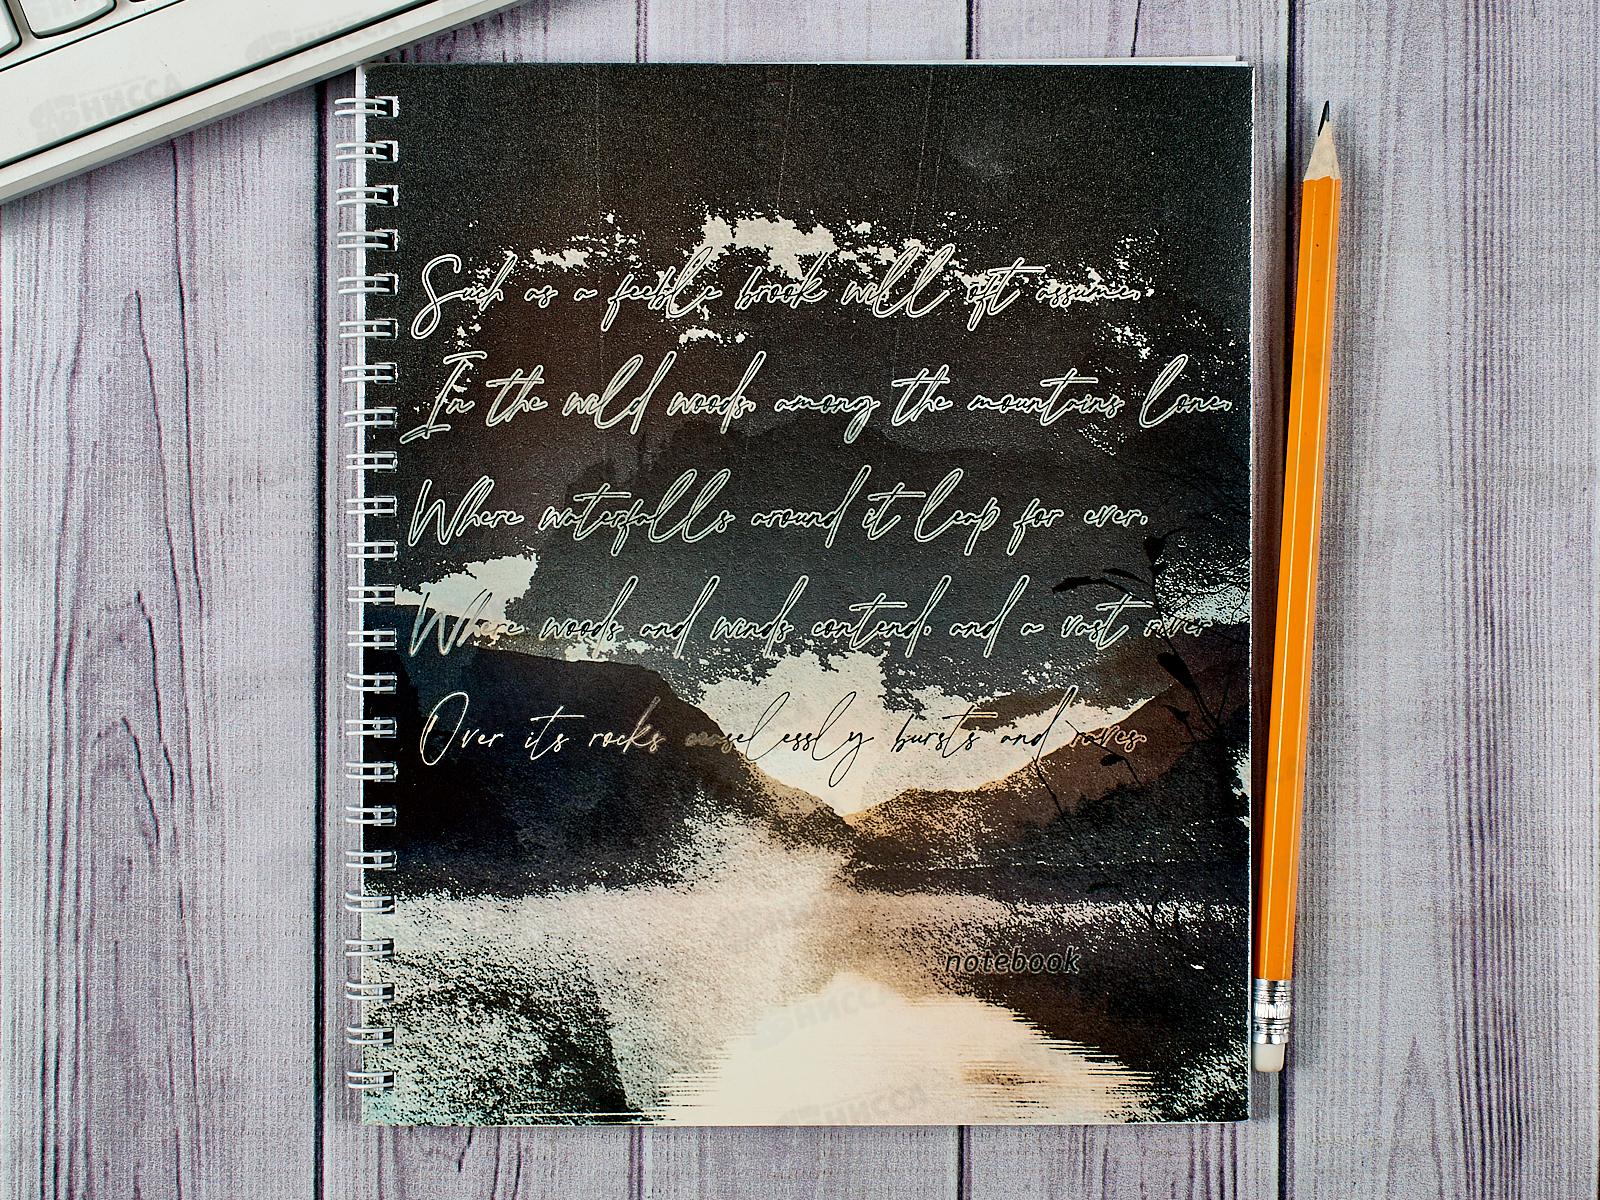 Such as a feeble brook will oft assume,
In the wild woods, among the mountains lone,
Where waterfalls around it leap for ever,
Where woods and winds contend, and a vast river
Over its rocks ceaselessly bursts and raves.
notebook
НИССА
НИССА
НИССА
НИССА